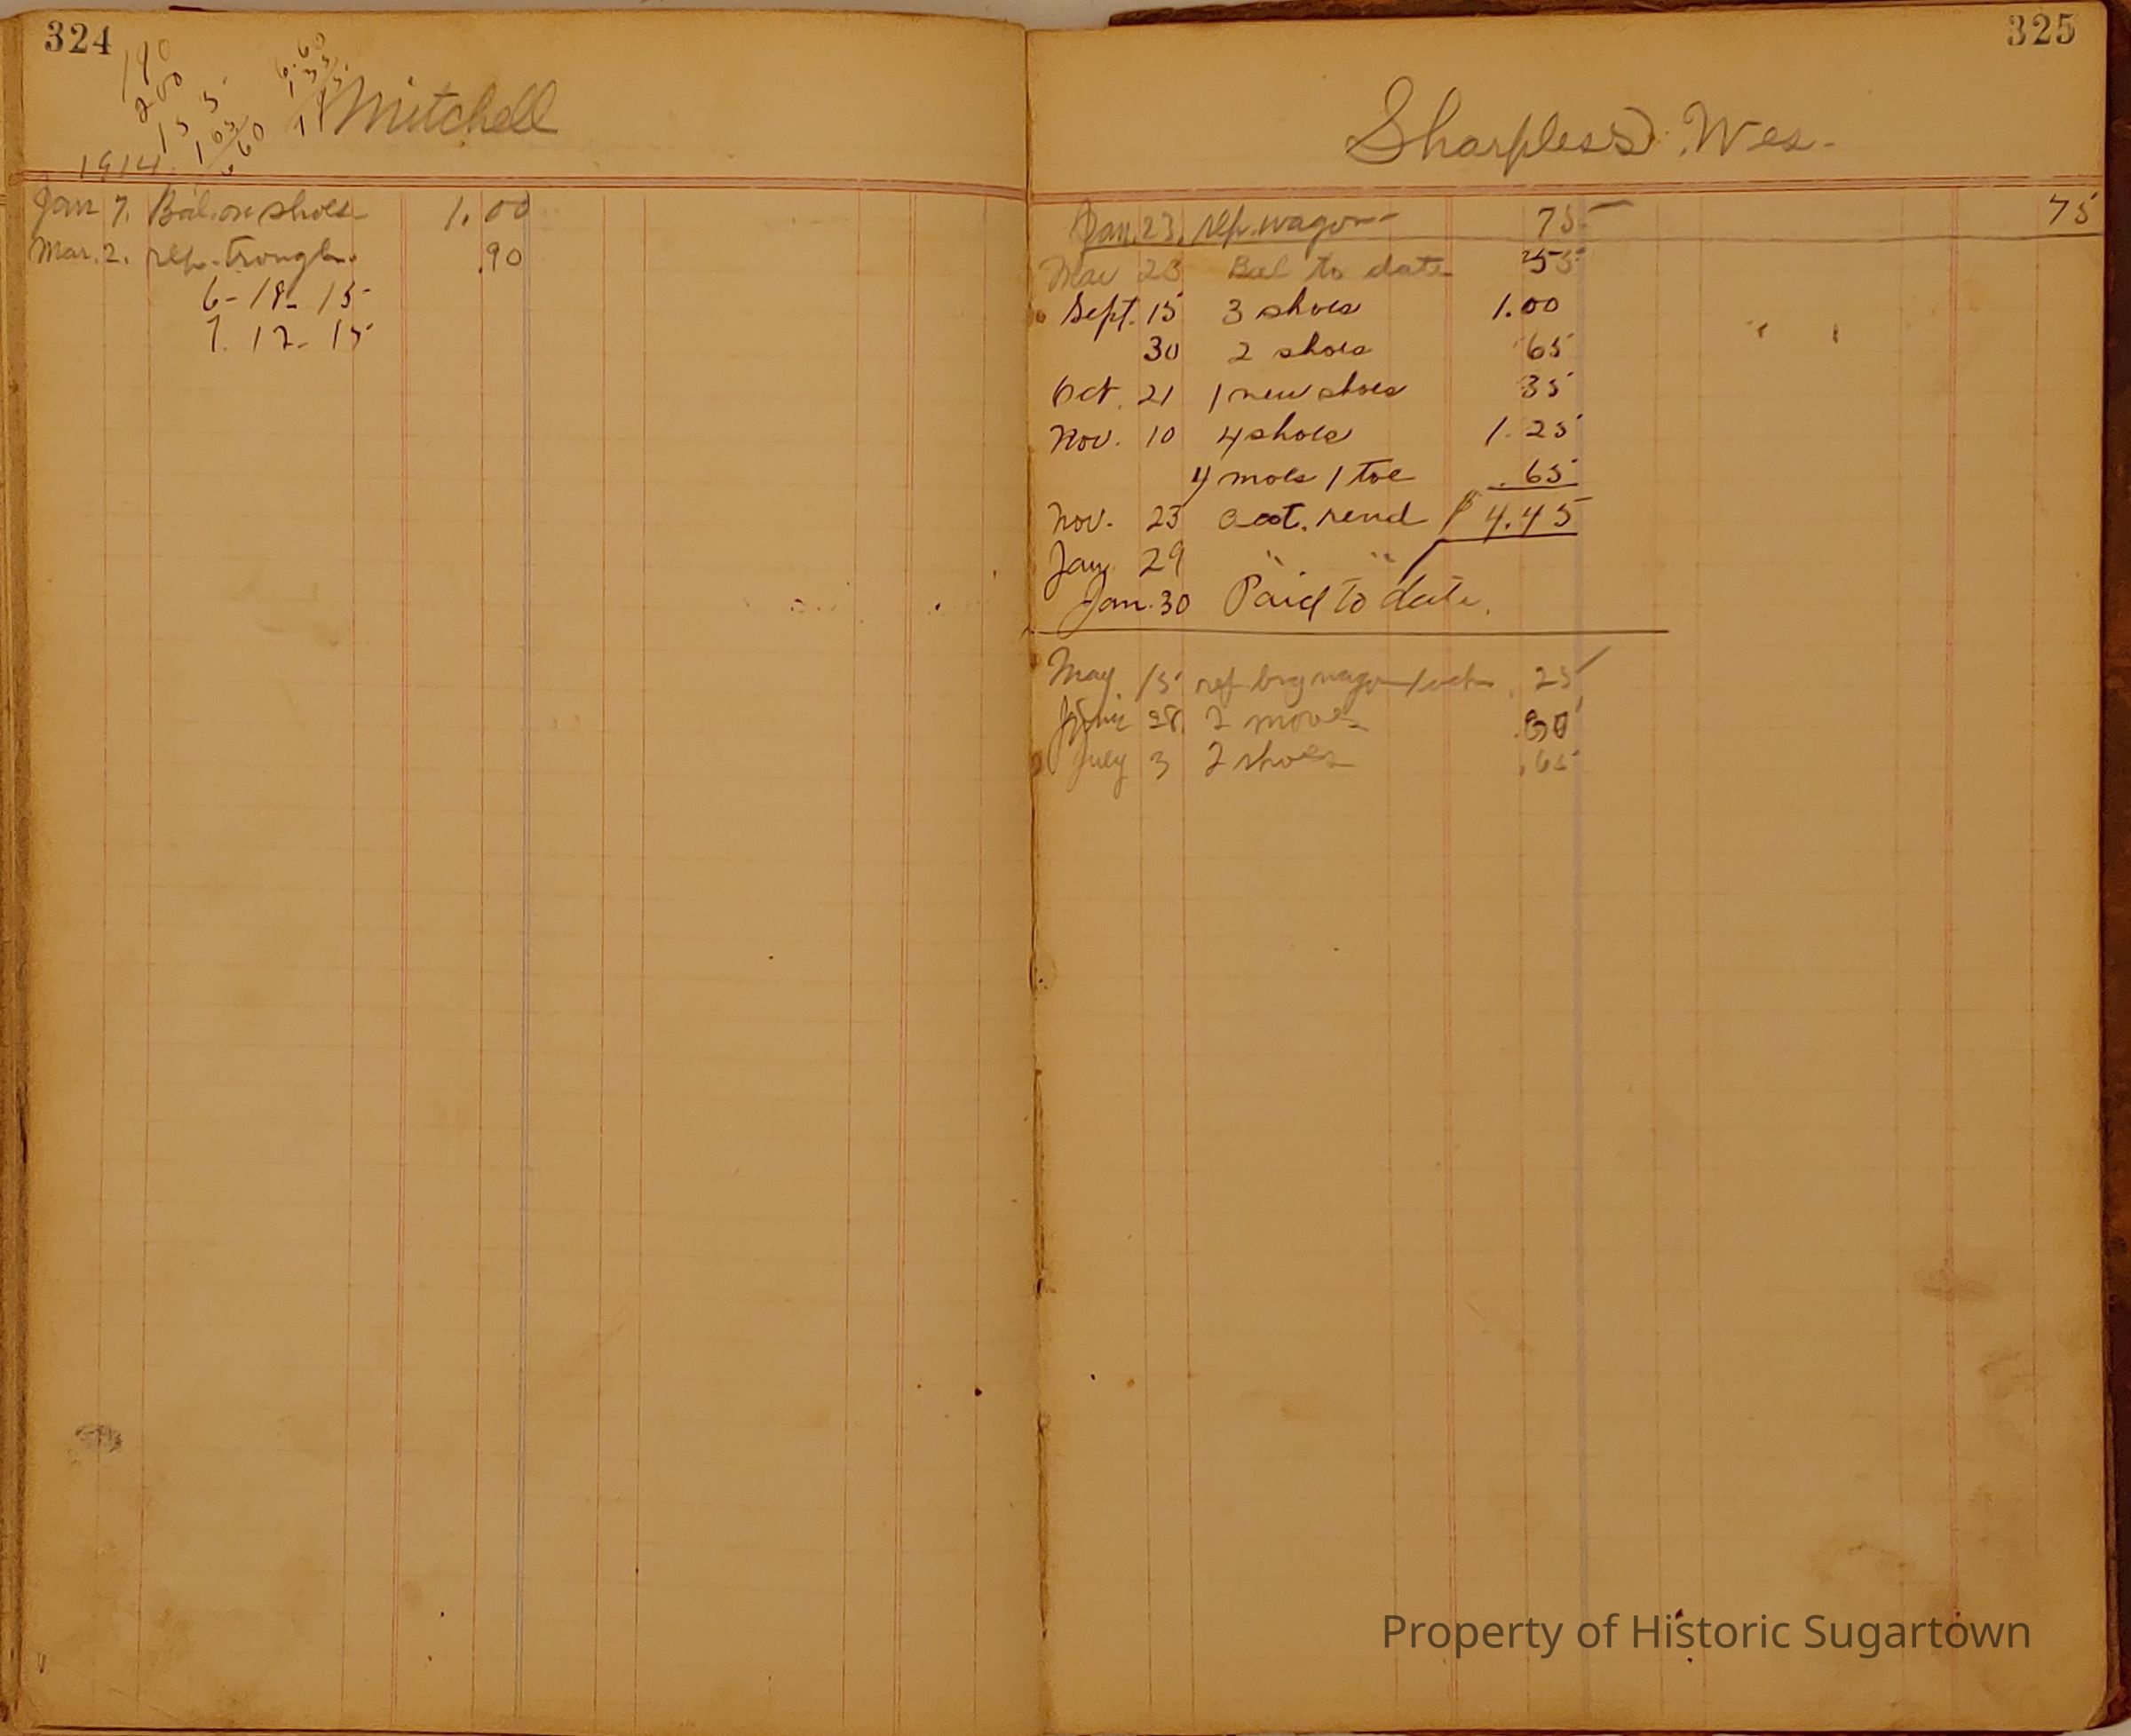 324
190
200
15 5
105
660
6.60
1 35
Mitchell
1914.
Jan 7. Bal. on shoes 1.00
Mar. 2. rep. trough. .90
6-18-15
7.12-15
325
Sharpless. Wes.
Jan. 23. rep. wagon 75 75
Mar 23 Bal to date 55
Sept. 15 3 shoes 1.00
30 2 shoes 65
Oct. 21 1 new shoes 35
Nov. 10 4 shoes 1.25
4 moes 1 toe .65
Nov. 23 acct. rend $4.45
Jan. 29 " "
Jan. 30 Paid to date.
May. 15 rep wagon .25
June 28 2 moves .30
July 3 2 shoes .65
Property of Historic Sugartown